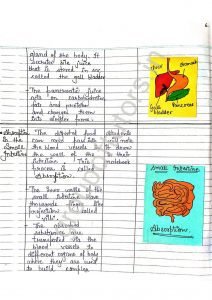 gland of the body. It
secretes bile juice
that is stored in sac
called the gall bladder
liver
stomach
Gall
bladder
Pancreas
The pancreatic juice
acts on carbohydrates,
fats and proteins
and changes them
into simpler forms.
Absorption
in the
Small
Intestine
The digested food
can now pass into
the blood vessels in
the wall of the
intestine. This
process is called
absorption.
students
will note
it down
in their
notebook
The inner walls of the
small intestine have
thousands finger like
projections called
villi.
The absorbed
substances are
transported via the
blood vessels to
different organs of body
where they are used
to build complex
Small Intestine
Absorption